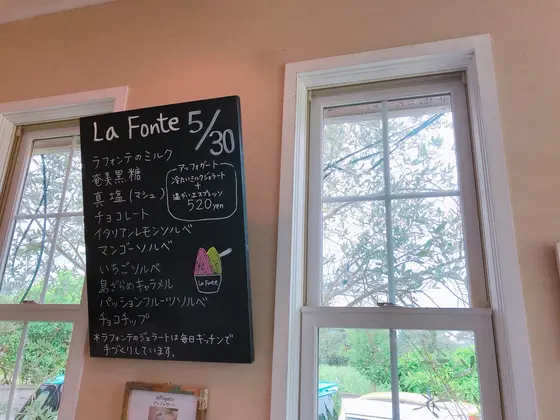 La Fonte 5/30
ラフォンテのミルク
奄美黒糖
真塩(マシュ)
チョコレート
イタリアンレモンソルベ
マンゴーソルベ
いちごソルベ
島ざらめキャラメル
パッションフルーツソルベ
チョコチップ
アッフォガート
冷たいミルクジェラート
+
温かいエスプレッソ
520yen
La Fonte
*ラフォンテのジェラートは毎日キッチンで
手づくりしています。
Affogato
アッフォガート